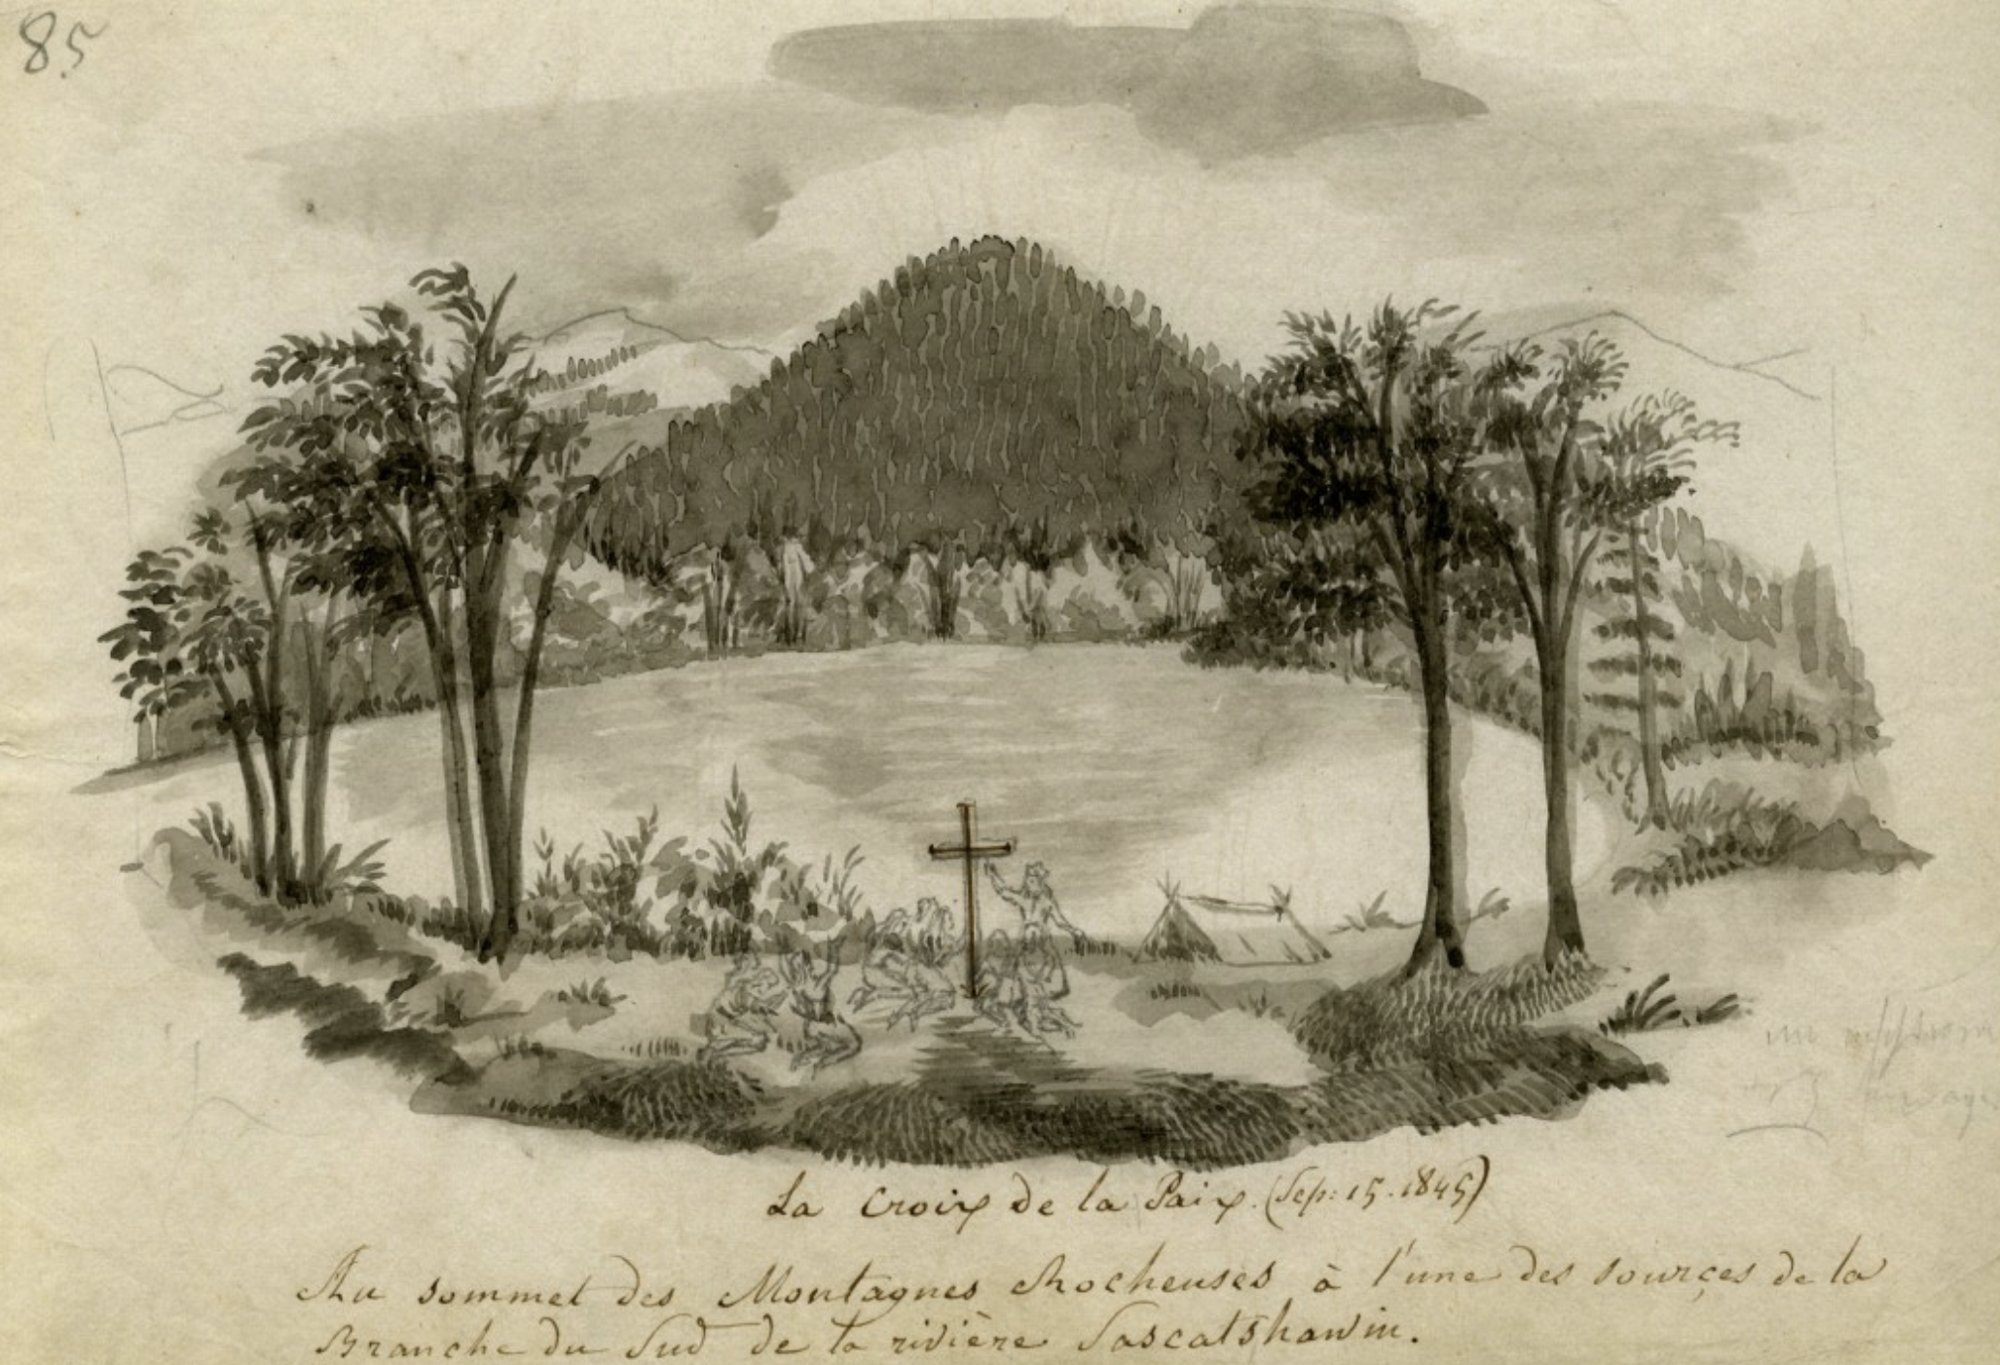 85
La Croix de la Paix. (Sep: 15. 1845)
Au sommet des Montagnes Rocheuses à l'une des sources de la
Branche du Sud de la rivière Sascatshawin.